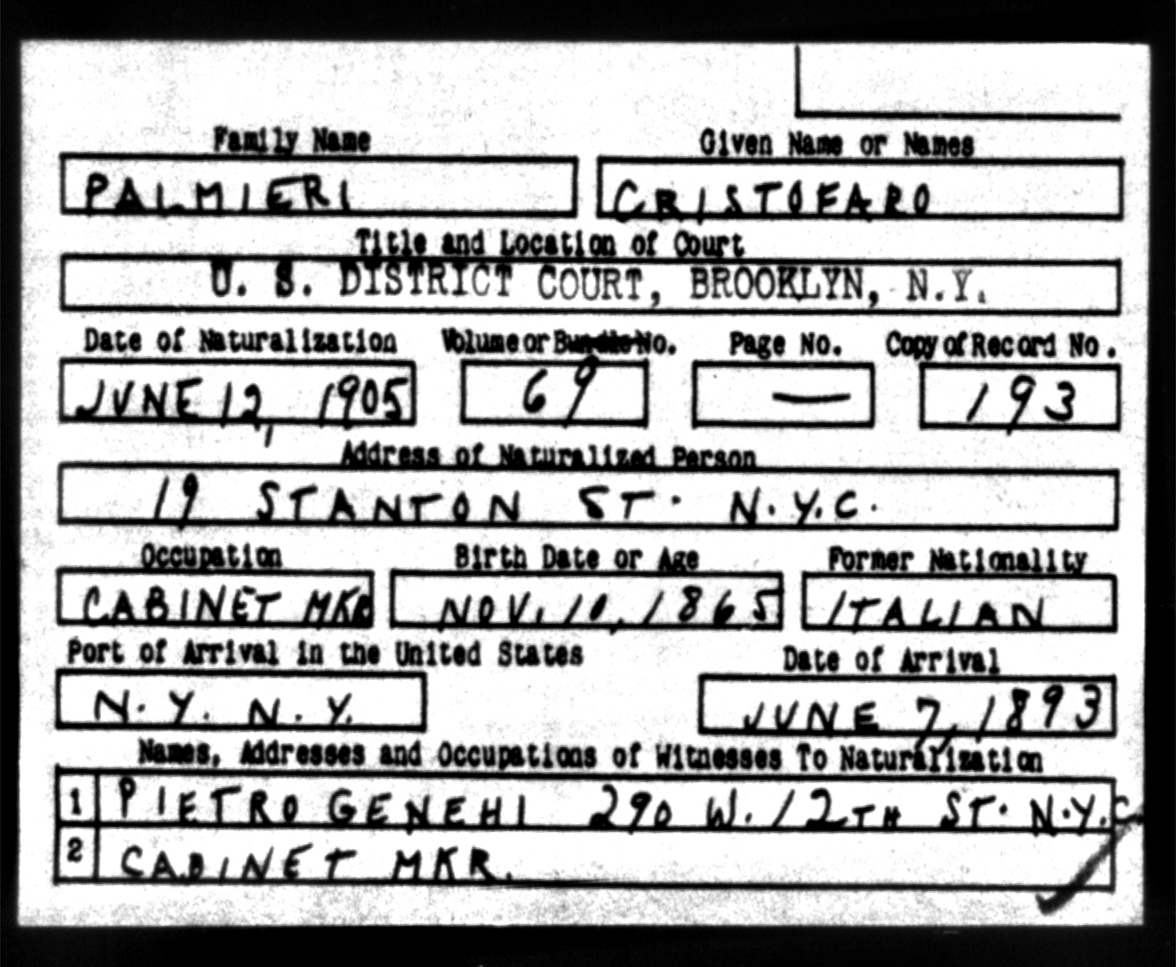 Family Name Given Name or Names
PALMIERI CRISTOFARO
Title and Location of Court
U. S. DISTRICT COURT, BROOKLYN, N.Y.
Date of Naturalization Volume or Bundle No. Page No. Copy of Record No.
JUNE 12, 1905 69 — 193
Address of Naturalized Person
19 STANTON ST. N.Y.C.
Occupation Birth Date or Age Former Nationality
CABINET MKR NOV. 10, 1865 ITALIAN
Port of Arrival in the United States Date of Arrival
N.Y. N.Y. JUNE 7, 1893
Names, Addresses and Occupations of Witnesses To Naturalization
1 PIETRO GENEHI 290 W. 12TH ST. N.Y.C.
2 CABINET MKR.